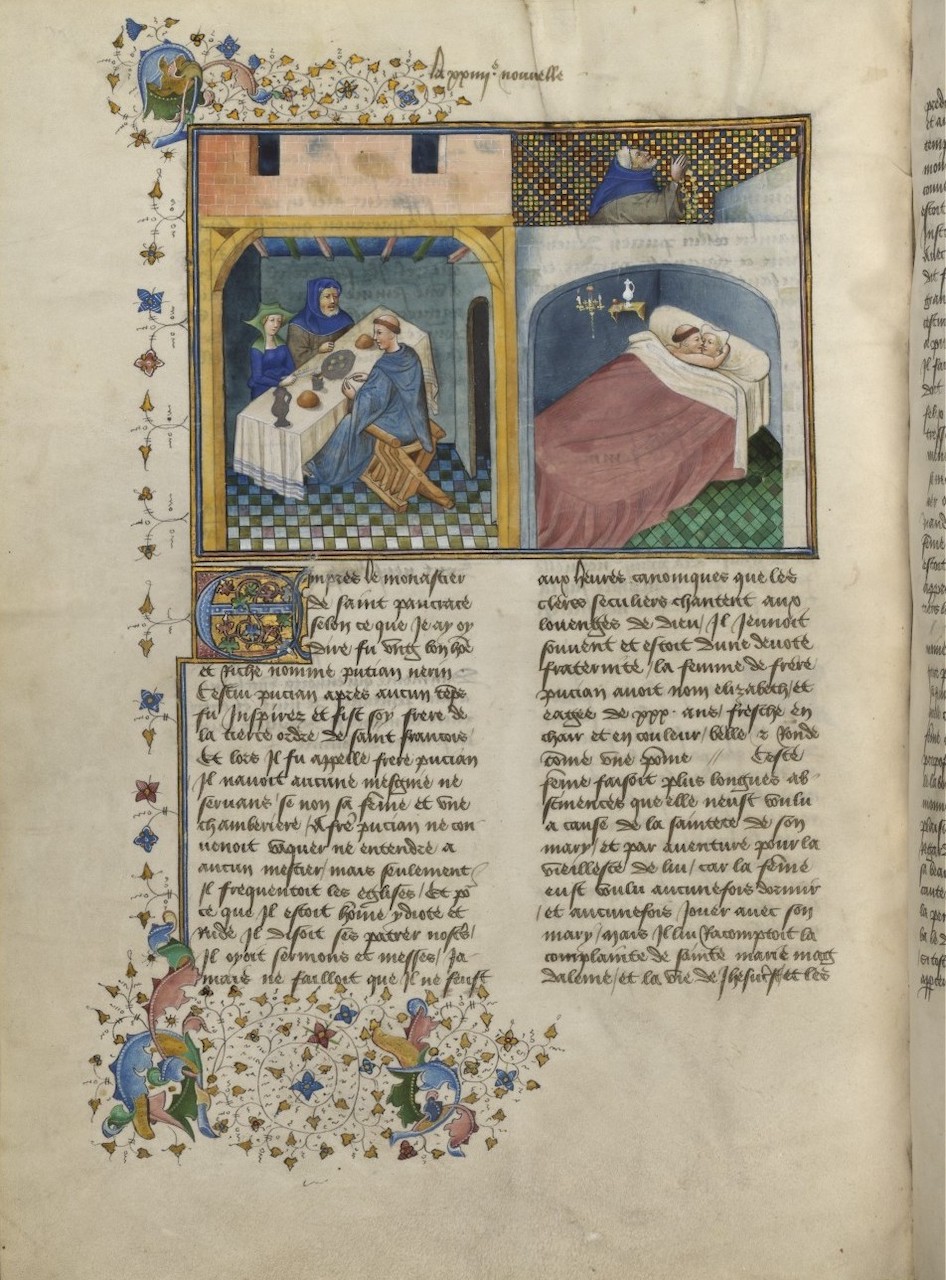 La xxiiiie nouvelle
Empres le monastier
de saint pancrace
selon ce que Je ay oy
dire fu ung bon hõe
et Riche nomme pucian nerin
Cestui pucian apres aucun tẽps
fu Inspirez et fist soy frere de
la tierce ordre de saint francois
Et lors Il fu appelle frere pucian
Il navoit aucune mesgnie ne
servans / se non sa fẽme et une
chamberiere / A frẽ pucian ne con
venoit vaquer ne entendre a
aucun mestier / mais seulement
Il frequentoit les eglises / Et po
ce que Il estoit hõme ydiote et
Rude Il disoit ses patrer nostrẽs
Il oyoit sermons et messes / Ja
mais ne failloit que Il ne feust
aux heures canoniques que les
clercs seculiers chantent aux
louenges de dieu / Il Jeunoit
souvent et estoit dune devote
fraternite / la femme de frere
pucian avoit nom elizabeth / et
eagee de xxx · ans / fresche en
chair et en couleur / belle z Ronde
cõme une põme // Ceste
fẽme faisoit plus longues ab
stinences que elle neust voulu
a cause de la saintete de son
mary / et par aventure pour la
vieillesse de lui / car la fẽme
eust voulu aucunefois dormir
/ et aucunefois Jouer avec son
mary / Mais Il lui Racomptoit la
complainte de sainte marie mag
dalene / et la vie de Jhesucrist et les